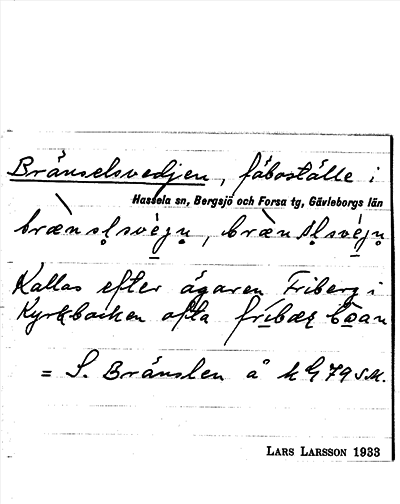 Bränselsvedjen, fäboställe i
Hassela sn, Bergsjö och Forsa tg, Gävleborgs län
brænsḷsve̱jṇ, brænsḷsve̱jṇ
Kallas efter ägaren Friberg i
Kyrkbacken ofta
= S. Bränslen å kG 79 S.M.
LARS LARSSON 1933